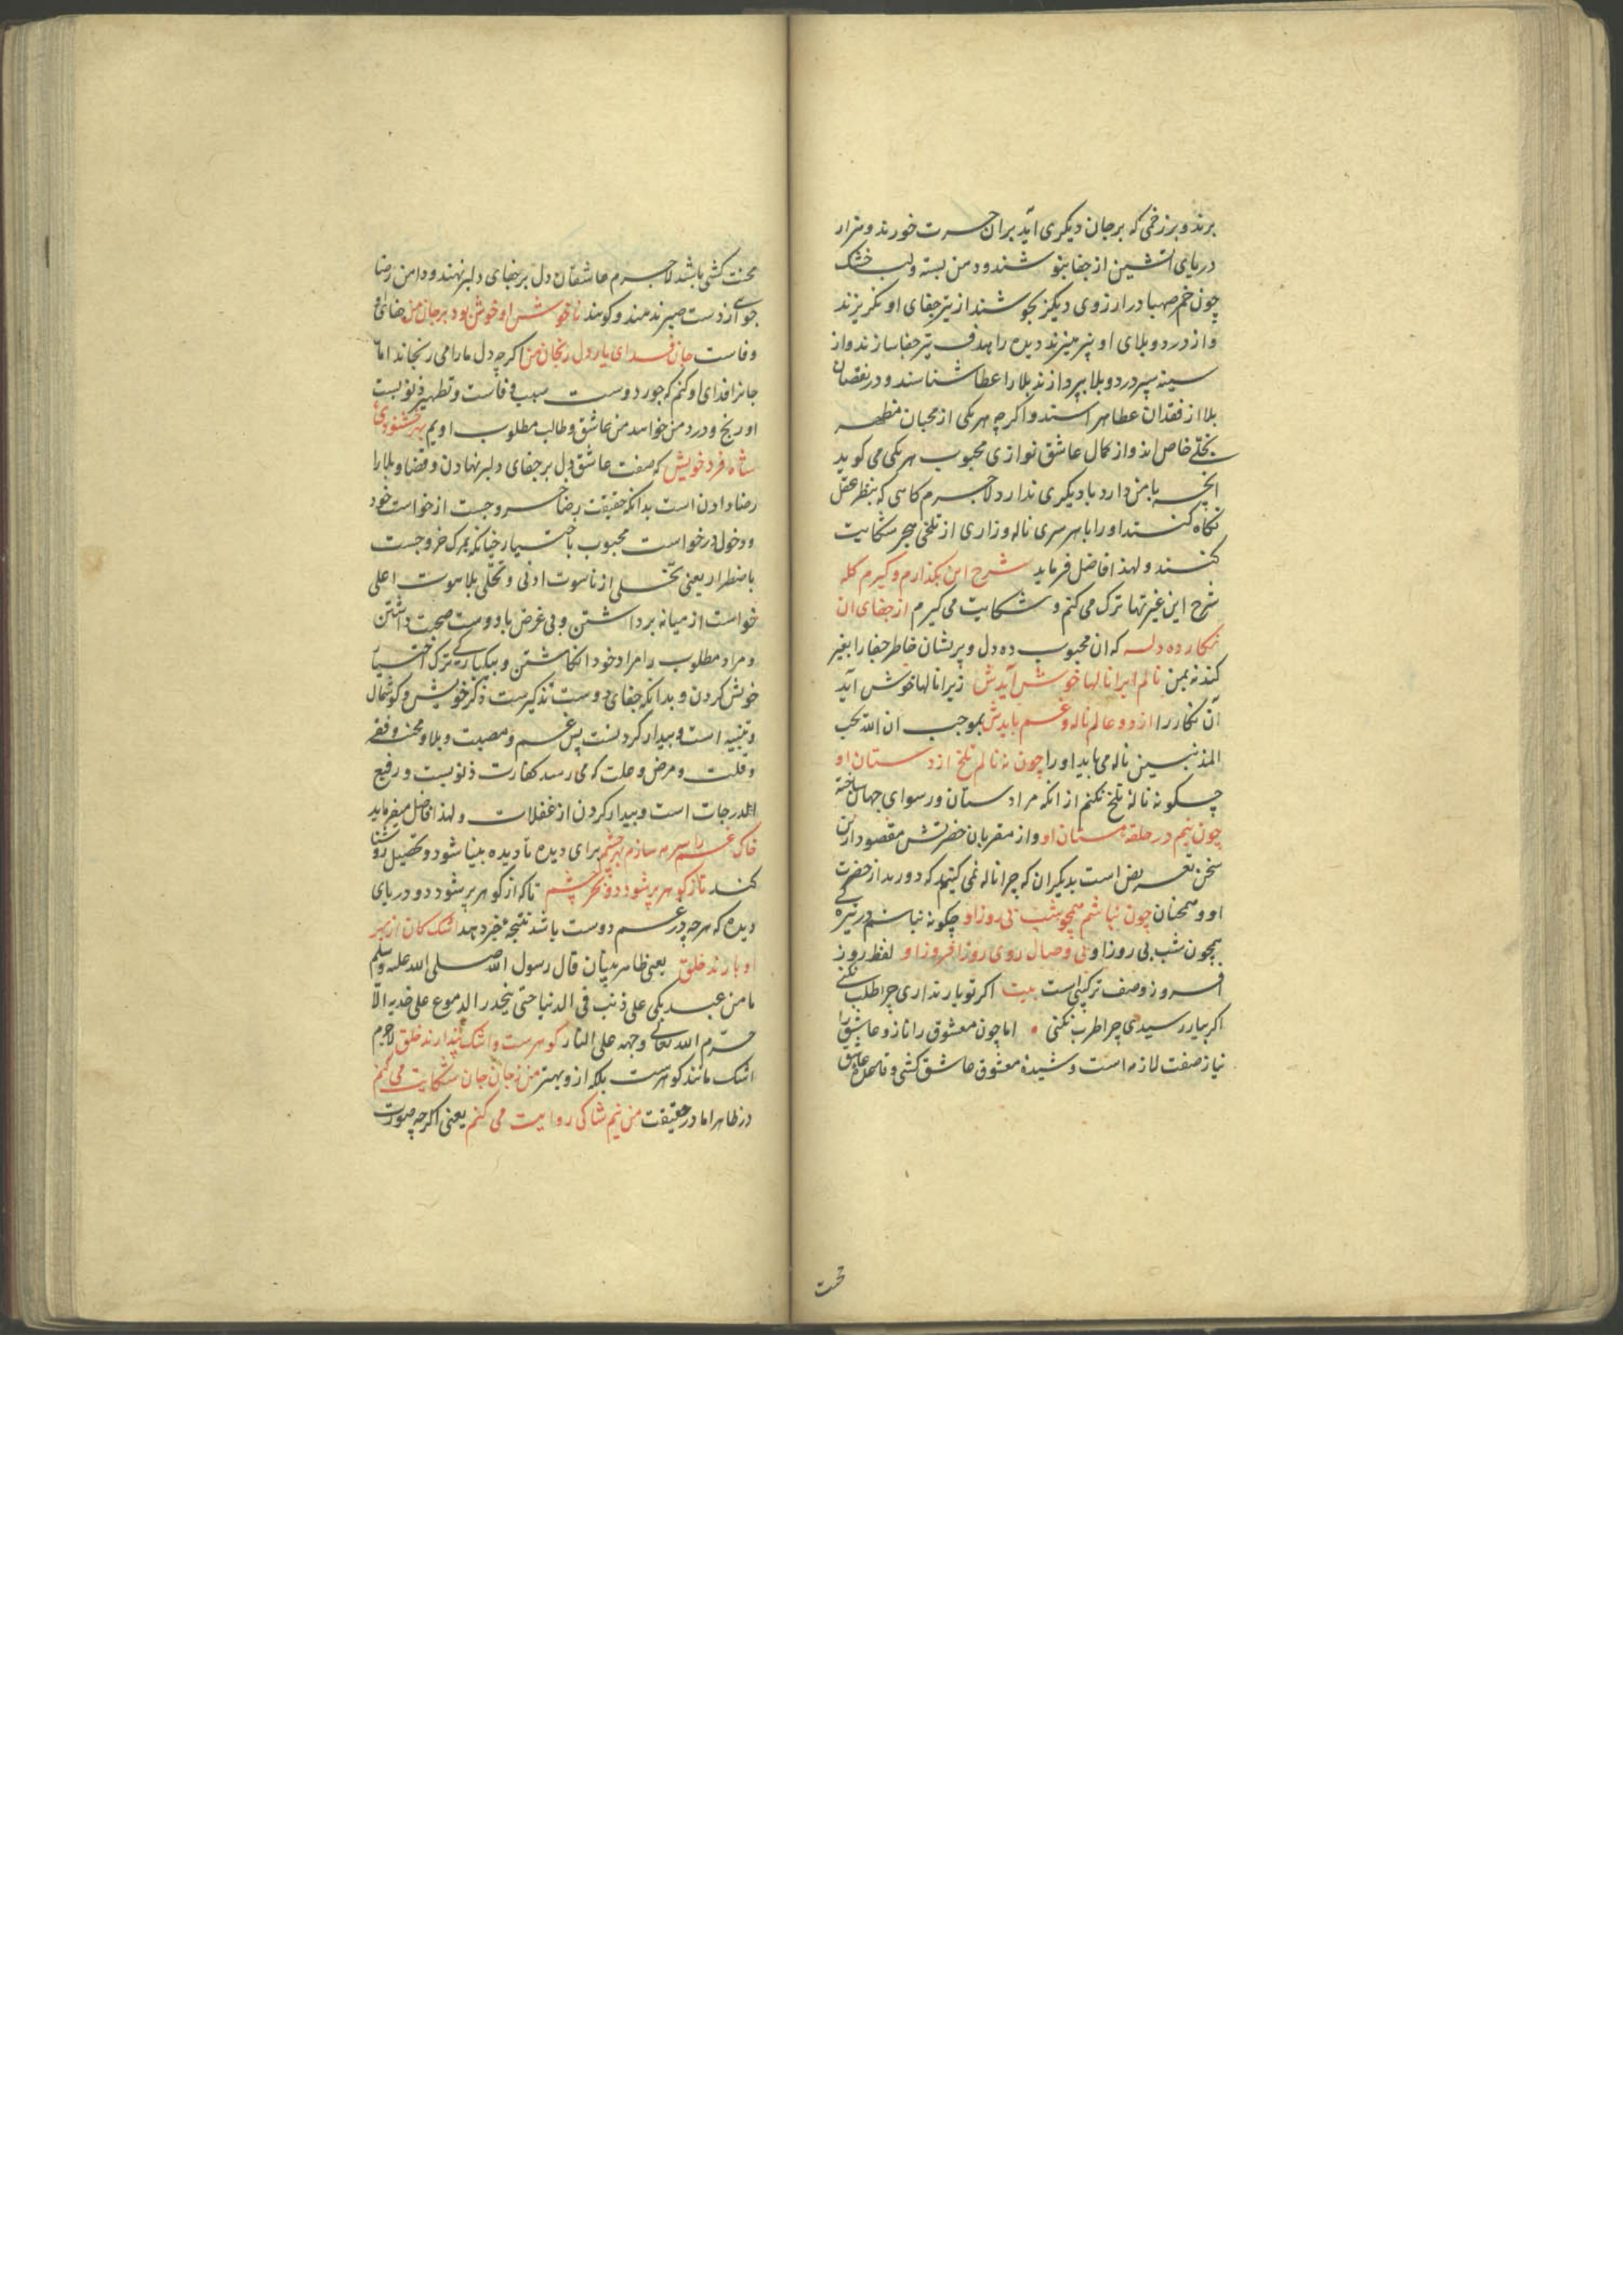 برند و برزخمی که بر جان دیکری آید بران حسرت خورند و هزار
دریای آتشین از جفا بنوشند و دهن بسته و لب خشک
چون خم صهبا در ارزوی دیکر بجوشند از تیر جفای او نکریزند
و از درد و بلای او نپرهیزند دیده را هدف تیر جفا سازند و از
سینه سپر درد و بلا پردازند بلا را عطا شناسند و در نقصان
بلا از فقدان عطا هراسند و اکرچه هر یکی از محبان مظهر
تجلّی خاص اند و از کمال عاشق نوازی محبوب هر یکی می کوید
آنچه با من دارد با دیکری ندارد لاجرم کاهی که بنظر عقل
نکاه کنند او را با هر سری ناله و زاری از تلخی هجر شکایت
کنند و لهذا فاضل فرماید شرح این بکذارم و کیرم کله
شرح این غیرتها ترک می کنم و شکایت می کیرم از جفای ان
نکار ده دله که ان محبوب ده دل و پریشان خاطر جفا را بغیر
کند نه بمن نالم ایرا نالها خوش آیدش زیرا نالها خوش آید
آن نکار را از دو عالم ناله و غم بایدش بموجب ان الله یحب
المذنبین ناله می باید او را چون نه نالم تلخ از دستان او
چکونه نالهٔ تلخ نکنم از انکه مرا دستان و رسوای جهان ساخته
چون نیم در حلقه مستان او و از مقربان حضرتش مقصود ازین
سخن تعریض است بدیکران که چرا ناله نمی کنید که دورید از حضرت
او و همچنان چون نباشم همچو شب بی روز او چکونه نباشم در تیرکی
همچون شب بی روز او بی وصال روی روز افروز او لفظ روز
افروز وصف ترکیبی است بیت اکر تو یار نداری چرا طلب نکنی
اکر بیار رسیدی چرا طرب نکنی • اما چون معشوق را ناز و عاشق را
نیاز صفت لازمه است و شیدهٔ معشوق عاشق کشی و تحمل عاشق
تحت
محنت کشی باشد لاجرم عاشقان دل بر جفای دلبر نهند و دامن رضا
جوی از دست صبر ندهند و کویند ناخوش او خوش بود بر جان من جفای او
وفاست جان فدای یار دل رنجان من اکرچه دل ما را می رنجاند اما
جانرا فدای او کنم که جور دوست سبب وفاست و تطهیر ذنوبست
او رنج و درد من خواهد من عاشق و طالب مطلوب اویم بهر خشنودی
شاه فرد خویش که صفت عاشق دل بر جفای دلبر نهادن و قضا و بلا را
رضا دادن است بدانکه حقیقت رضا خروجست از خواست خود
و دخول در خواست محبوب باختیار چنانکه مرک خروجست
باضطرار یعنی تخلّی از ناسوت ادنی و تحلّی بلاهوت اعلی
خواست از میانه برداشتن و بی غرض با دوست صحبت داشتن
و مراد مطلوب را مراد خود انکاشتن و بیکبارکی ترک اختیار
خویش کردن و بدانکه جفای دوست تذکیرست ذکر خویش و کوشمال
و تنبیه است و بیدار کردنست پس غم و مصیبت و بلا و محنت و فقر
و قلت و مرض و علت که می رسد کفارت ذنوبست و رفیع
الدرجات است و بیدار کردن از غفلات و لهذا فاضل میفرماید
خاک غم را سرمه سازم بهر چشم برای دیده تا دیده بینا شود و تحصیل روشنا
کند تا ز کوهر پر شود دو بحر چشم تا که از کوهر پر شود دو دریای
دیده که هرچه در غم دوست باشد نتیجه خیر دهد اشک کان از بهر
او بارند خلق یعنی ظاهر بینان قال رسول الله صلی الله علیه وسلم
ما من عبد یبکی علی ذنب فی الدنیا حتی ینحدر الدموع علی خدیه الّا
حرّم الله تعالی وجهه علی النار کوهرست و اشک پندارند خلق لاجرم
اشک مانند کوهرست بلکه ازو بهتر من ز جان جان شکایت می کنم
در ظاهر اما در حقیقت من نیم شاکی روایت می کنم یعنی اکرچه صورت